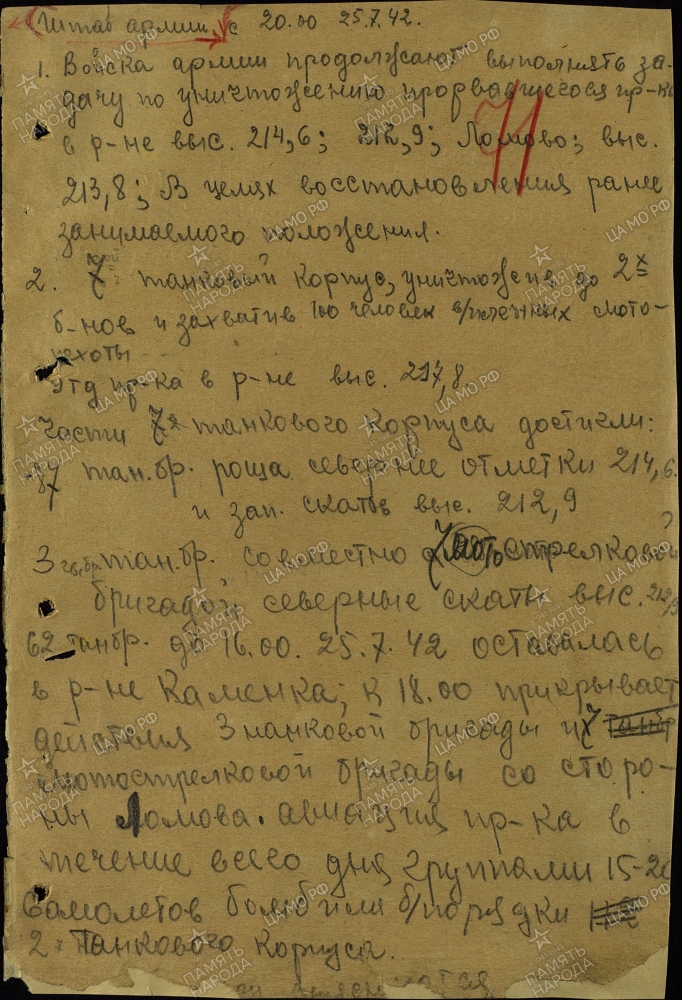 Штаб армии с 20.00 25.7.42.
1. Войска армии продолжают выполнять за-
дачу по уничтожению прорвавшегося пр-ка
в р-не выс. 214,6; 212,9; Ломово; выс.
213,8; В целях восстановления ранее
занимаемого положения.
2. 7 танковый корпус, уничтожив до 2х
б-нов и захватив 100 человек мото-
пехоты
пр-ка в р-не выс. 217,8
части 7 танкового корпуса достигли:
87 тан.бр. роща севернее отметки 214,6.
и зап. скаты выс. 212,9
3 гв. тан.бр. совместно с 7 мотострелковой
бригадой северные скаты выс. 212,9
62 танбр. до 16.00. 25.7.42 оставалась
в р-не Каменка; к 18.00 прикрывает
действия 3 танковой бригады и 7 танбр
мотострелковой бригады со сторо-
ны Ломова. авиация пр-ка в
течение всего дня группами 15-20
самолетов бомбили б/порядки
2 танкового корпуса.